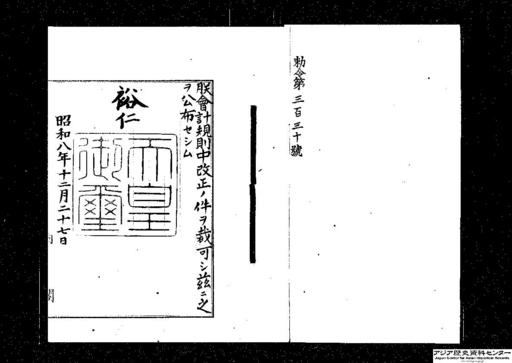 勅令第三百三十號
朕會計規則中改正ノ件ヲ裁可シ茲ニ之
ヲ公布セシム
裕仁
天皇
御璽
昭和八年十二月二十七日
アジア歴史資料センター
Japan Center for Asian Historical Records